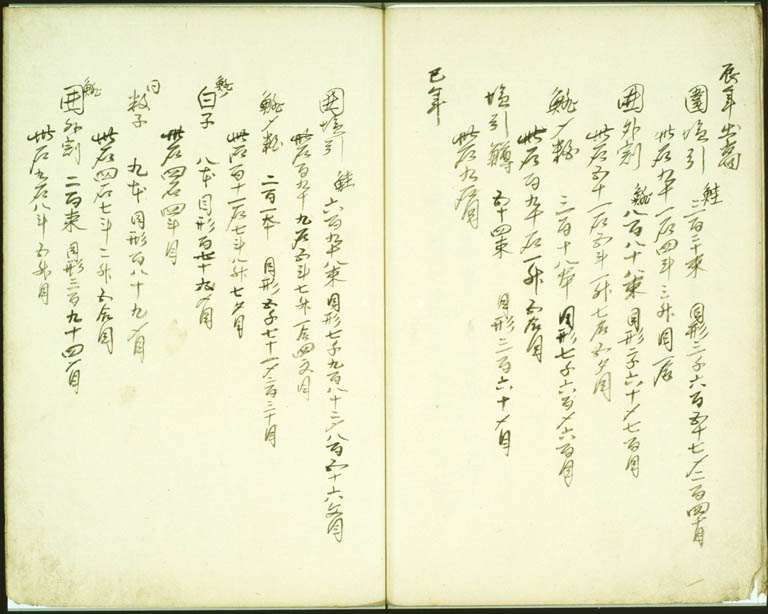 辰年出高
囲塩引 鮭 二百二十束 目形二千六百五十七〆二百四十目
此石九十一石四斗三升
囲外割 鯡 八百八十八束 目形二千六十〆七百目
此石五十一石五斗一升七合五夕
鯡〆粕 三百十八本 目形七千六百〆六百目
此石百九十石一升五合
塩引鱒 五十四束 目形三百六十〆目
此石九石
巳年
囲塩引 鮭 六百九十八束 目形七千九百八十二〆八百五十六匁
此石百九十九石五斗七升一合四夕
鯡〆粕 二百一本 目形五千七十一〆二百三十目
石七斗八升七夕
鯡白子 八本 目形百七十〆目
此石四石四斗
同数子 九本 目形百八十九〆目
此石四石七斗二升五合
鯡囲外割 二百束 目形三百九十四〆目
此石九石八斗五升